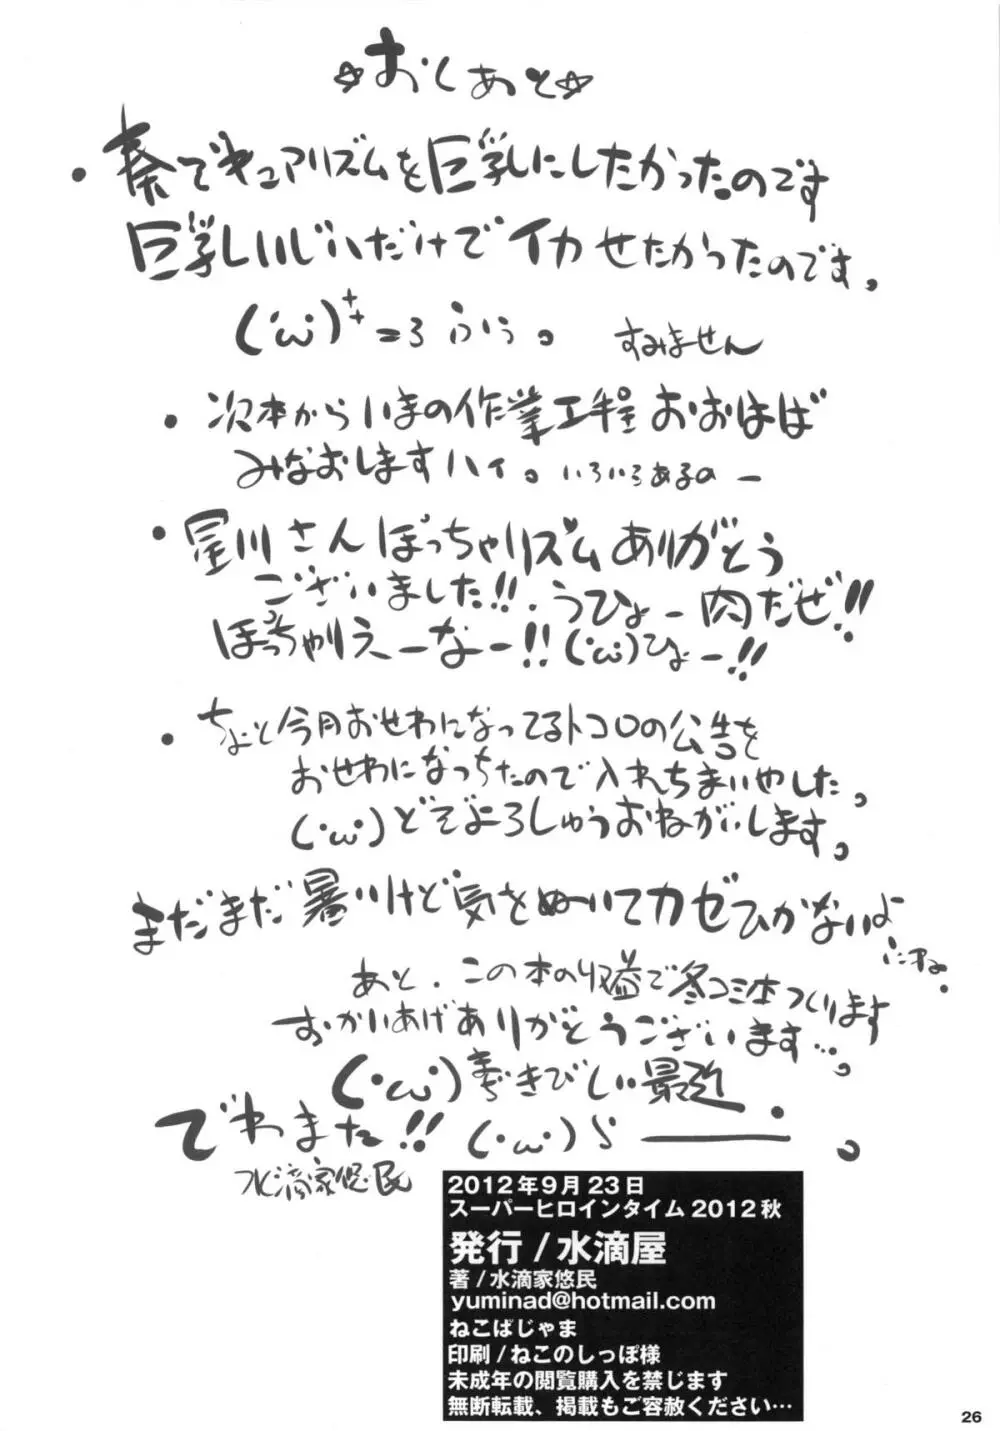 ☆おしあと☆
・奏でキュアリズムを巨乳にしたかったのです
巨乳しいじいだけでイカせたかったのです。
(´ω`)++=3 ふぅ。 すみません
・次本からいまの作業工程おおはば
みなおしますハイ。いろいろあるの―
・星川さんぽっちゃりズムありがとう
ございました!!. うひょー肉だぜ!!
ぽっちゃりえーなー!!(´ω`)ひょー!!
・ちょと今月おせわになってるトコロの公告を
おせわになっちたので入れちまいやした。
(・ω・)どぞよろしゅうおねがいします。
まだまだ暑いけど気をぬいてカゼひかないよ
にね。
あと、この本の収益で冬コミ本つくります
おかいあげありがとうございます…。
(・ω・)きびしい最近
でわまた!! (・ω・)ノシ ―――。
水滴家悠民
2012年9月23日
スーパーヒロインタイム2012秋
発行/水滴屋
著/水滴家悠民
yuminad@hotmail.com
ねこばじゃま
印刷/ねこのしっぽ様
未成年の閲覧購入を禁じます
無断転載、掲載もご容赦ください…
26